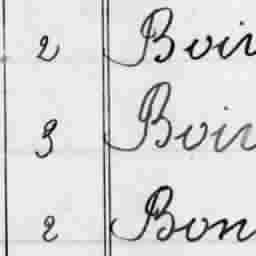 2 Boir
3 Boir
2 Bon